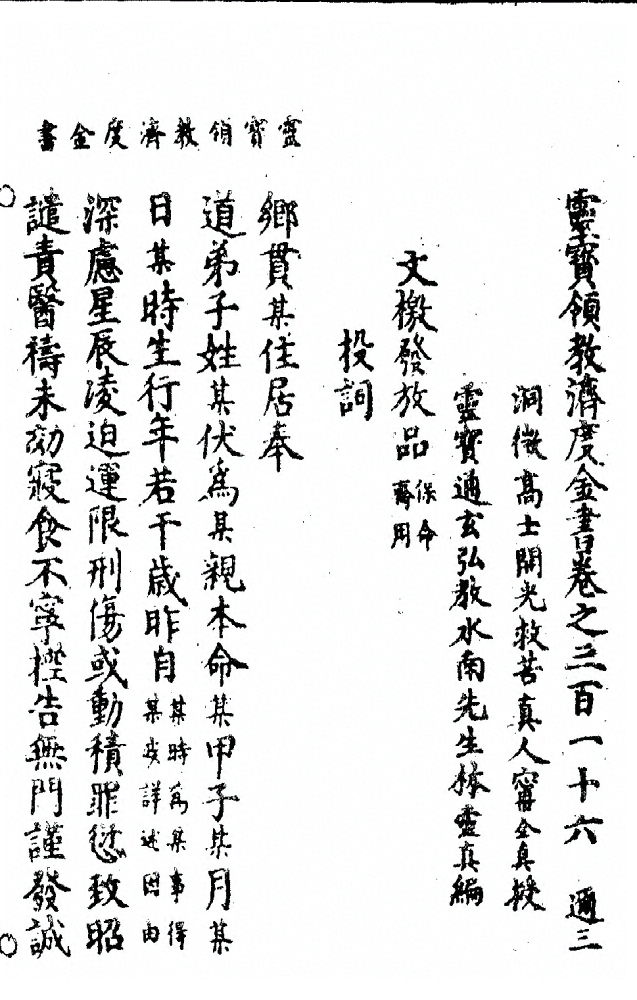 靈寶領教濟度金書
靈寶領教濟度金書卷之三百一十六　邇三
洞微高士開光救苦真人甯全真授
靈寶通玄弘教水南先生林靈真編
文檄發放品 保命齋用
投詞
鄉貫某住居奉
道弟子姓某伏爲某親本命某甲子某月某
日某時生行年若干歲昨自某時爲某事得某疾詳述因由
深慮星辰凌迫運限刑傷或動積罪愆致昭
譴責醫禱未効寢食不寧控告無門謹發誠